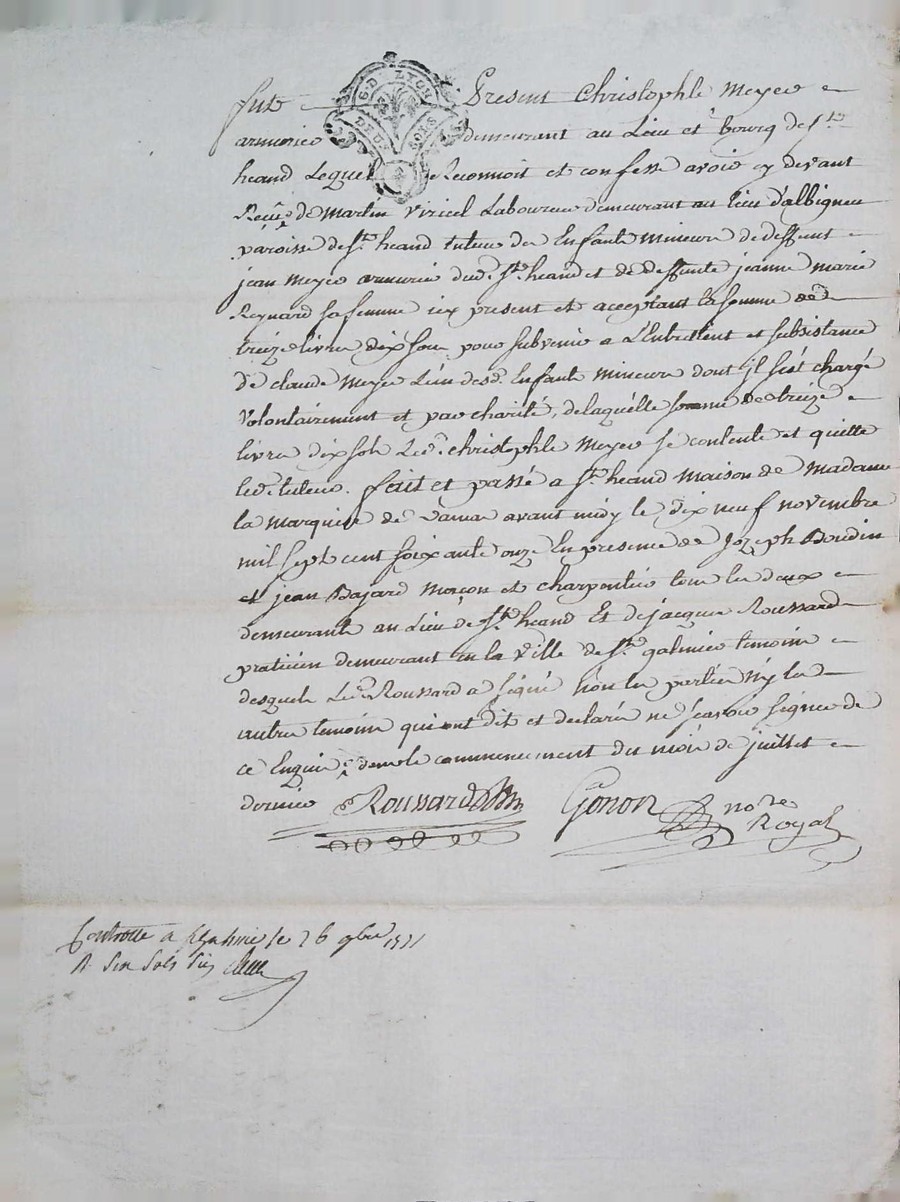 G. D. LYON
DEUX SOLS
fut Present Christophle Meyer
armurier demeurant au Lieu et bourg de St
heand Lequel Reconnoit et confesse avoir cy devant
Reçüe de Martin Viricel Laboureur demeurant au lieu d'albigneu
paroisse de St heand tuteur des Enfants mineurs de deffunt
jean Meyer armurier dud. St heand et de deffunte jeanne marie
Reynard sa femme icy present et acceptant la somme de
treize livres dix sous pour subvenir a L'Entretient et subsistance
de claude Meyer L'un desd. Enfants mineurs dont il s'est chargé
volontairement et par charité, de laquelle somme de treize
livres dix sols Led. christophle Meyer se contente et quitte
led. tuteur. fait et passé a St heand maison de Madame
la marquise de avant midy le dix neuf novembre
mil sept cent soixante onze En presence de Jozeph Boudin
et jean Bajard maçon et charpentier tous les deux
demeurants au Lieu de St heand Et de jacques Roussard
praticien demeurant en la ville de St galmier temoins
desquels Led. Roussard a signé non les parties n'y les
autres temoins qui ont dit et declarés ne sçavoir signer de
ce Enquis dans le commencement du mois de juillet
dernier Roussard Gonon nore
Royal
Controllé a St galmier le 26 9bre 1771
R six sols six